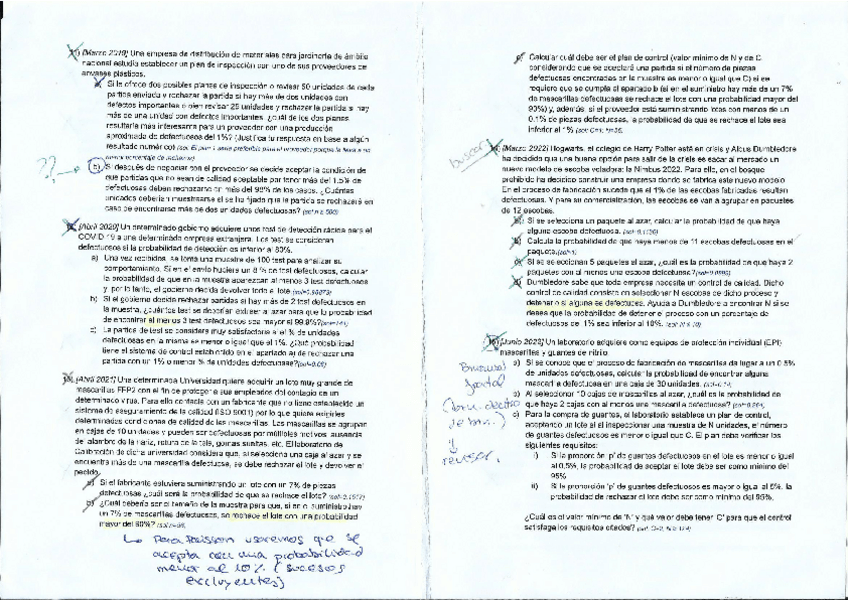 [Marzo 2019] Una empresa de distribución de materiales para jardinería de ámbito
nacional estudia establecer un plan de inspección con uno de sus proveedores de
envases plásticos.
a) Si le ofrece dos posibles planes de inspección o revisar 50 unidades de cada
partida enviada y rechazar la partida si hay más de dos unidades con
defectos importantes o bien revisar 25 unidades y rechazar la partida si hay
más de una unidad con defectos importantes. ¿cuál de los dos planes
resultaría más interesante para un proveedor con una producción
aproximada de defectuosos del 1%? (Justifica tu respuesta en base a algún
resultado numérico)
??
b) Si después de negociar con el proveedor se decide aceptar la condición de
que partidas que no sean de calidad aceptable por tener más del 1.5% de
defectuosos deben rechazarse en más del 98% de los casos. ¿Cuántas
unidades deberían muestrearse si se ha fijado que la partida se rechazará en
caso de encontrarse más de dos unidades defectuosas?
[Abril 2020] Un determinado gobierno adquiere unos test de detección rápida para el
COVID-19 a una determinada empresa extranjera. Los test se consideran
defectuosos si la probabilidad de detección es inferior al 80%.
a) Una vez recibidos, se toma una muestra de 100 test para analizar su
comportamiento. Si el envío tuviera un 8% de test defectuosos, calcular
la probabilidad de que en la muestra aparezcan al menos 3 test defectuosos
y, por lo tanto, el gobierno decida devolver todo el lote.
b) Si el gobierno decide rechazar partidas si hay más de 2 test defectuosos en
la muestra, ¿cuántos test se deberían extraer al azar para que la probabilidad
de encontrar al menos 3 test defectuosos sea mayor al 99.8%?
c) La partida de test se considera muy satisfactoria si el % de unidades
defectuosas en la misma es menor o igual que el 1%. ¿Qué probabilidad
tiene el sistema de control establecido en el apartado a) de rechazar una
partida con un 1% o menor % de unidades defectuosas?
[Abril 2021] Una determinada Universidad quiere adquirir un lote muy grande de
mascarillas FFP2 con el fin de proteger a sus empleados del contagio de un
determinado virus. Para ello contacta con un fabricante que no tiene establecido un
sistema de aseguramiento de la calidad (ISO 9001) por lo que quiere exigirles
determinadas condiciones de calidad de las mascarillas. Las mascarillas se agrupan
en cajas de 10 unidades y pueden ser defectuosas por múltiples motivos: ausencia
del alambre de la nariz, rotura de la tela, gomas sueltas, etc. El laboratorio de
Calibración de dicha universidad considera que, si selecciona una caja al azar y se
encuentra más de una mascarilla defectuosa, se debe rechazar el lote y devolver el
pedido.
a) Si el fabricante estuviera suministrando un lote con un 7% de piezas
defectuosas ¿cuál será la probabilidad de que se rechace el lote?
b) ¿Cuál debería ser el tamaño de la muestra para que, si en el suministro hay
un 7% de mascarillas defectuosas, se rechace el lote con una probabilidad
mayor del 90%?
↳ Para Poisson usaremos que se
acepta con una probabilidad
menor al 10% (sucesos
excluyentes)
c) Calcular cuál debe ser el plan de control (valor mínimo de N y de C
considerando que se aceptará una partida si el número de piezas
defectuosas encontradas en la muestra es menor o igual que C) si se
requiere que se cumpla el apartado b) (si en el suministro hay más de un 7%
de mascarillas defectuosas se rechace el lote con una probabilidad mayor del
90%) y, además, si el proveedor está suministrando lotes con menos de un
0.1% de piezas defectuosas, la probabilidad de que se rechace el lote sea
inferior al 1%
buscar
[Marzo 2022] Hogwarts, el colegio de Harry Potter está en crisis y Albus Dumbledore
ha decidido que una buena opción para salir de la crisis es sacar al mercado un
nuevo modelo de escoba voladora: la Nimbus 2022. Para ello, en el bosque
prohibido ha decidido construir una empresa donde se fabrica este nuevo modelo.
En el proceso de fabricación sucede que el 1% de las escobas fabricadas resultan
defectuosas. Y para su comercialización, las escobas se van a agrupar en paquetes
de 12 escobas.
a) Si se selecciona un paquete al azar, calcular la probabilidad de que haya
alguna escoba defectuosa.
b) Calcula la probabilidad de que haya menos de 11 escobas defectuosas en el
paquete.
c) Si se seleccionan 5 paquetes al azar, ¿cuál es la probabilidad de que haya 2
paquetes con al menos una escoba defectuosa?
d) Dumbledore sabe que toda empresa necesita un control de calidad. Dicho
control de calidad consiste en seleccionar N escobas de dicho proceso y
detener si alguna es defectuosa. Ayuda a Dumbledore a encontrar N si se
desea que la probabilidad de detener el proceso con un porcentaje de
defectuosos del 1% sea inferior al 10%.
[Junio 2023] Un laboratorio adquiere como equipos de protección individual (EPI)
mascarillas y guantes de nitrilo.
a) Si se conoce que el proceso de fabricación de mascarillas da lugar a un 0.5%
de unidades defectuosas, calcular la probabilidad de encontrar alguna
mascarilla defectuosa en una caja de 30 unidades.
b) Al seleccionar 10 cajas de mascarillas al azar, ¿cuál es la probabilidad de
que haya 2 cajas con al menos una mascarilla defectuosa?
c) Para la compra de guantes, el laboratorio establece un plan de control,
aceptando un lote si al inspeccionar una muestra de N unidades, el número
de guantes defectuosos es menor o igual que C. El plan debe verificar los
siguientes requisitos:
i) Si la proporción 'p' de guantes defectuosos en el lote es menor o igual
al 0,5%, la probabilidad de aceptar el lote debe ser como mínimo del
95%
ii) Si la proporción 'p' de guantes defectuosos es mayor o igual al 5%, la
probabilidad de rechazar el lote debe ser como mínimo del 95%.
¿Cuál es el valor mínimo de 'N' y qué valor debe tener 'C' para que el control
satisfaga los requisitos citados?
revisar.